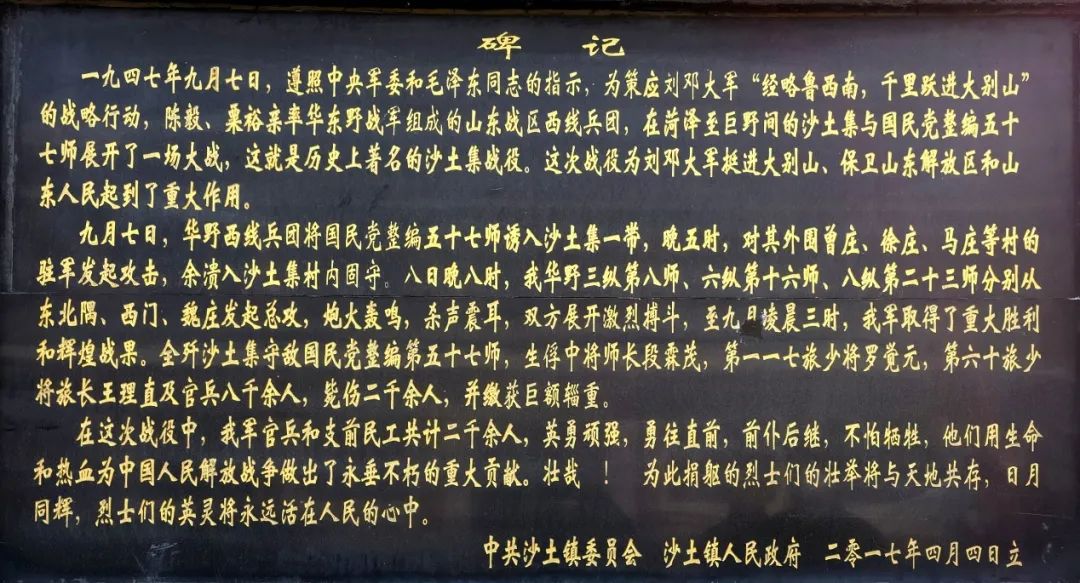 碑 记
一九四七年九月七日，遵照中央军委和毛泽东同志的指示，为策应刘邓大军“经略鲁西南，千里跃进大别山”
的战略行动，陈毅、粟裕亲率华东野战军组成的山东战区西线兵团，在菏泽至巨野间的沙土集与国民党整编五十
七师展开了一场大战，这就是历史上著名的沙土集战役。这次战役为刘邓大军挺进大别山、保卫山东解放区和山
东人民起到了重大作用。
九月七日，华野西线兵团将国民党整编五十七师诱入沙土集一带，晚五时，对其外围曾庄、徐庄、马庄等村的
驻军发起攻击，余溃入沙土集村内固守。八日晚八时，我华野三纵第八师、六纵第十六师、八纵第二十三师分别从
东北隅、西门、魏庄发起总攻，炮火轰鸣，杀声震耳，双方展开激烈搏斗，至九月凌晨三时，我军取得了重大胜利
和辉煌战果。全歼沙土集守敌国民党整编第五十七师，生俘中将师长段霖茂，第一一七旅少将罗觉元，第六十旅少
将旅长王理直及官兵八千余人，毙伤二千余人，并缴获巨额辎重。
在这次战役中，我军官兵和支前民工共计二千余人，英勇顽强，勇往直前，前仆后继，不怕牺牲，他们用生命
和热血为中国人民解放战争做出了永垂不朽的重大贡献。壮哉 ！ 为此捐躯的烈士们的壮举将与天地共存，日月
同辉，烈士们的英灵将永远活在人民的心中。
中共沙土镇委员会 沙土镇人民政府 二零一七年四月四日立